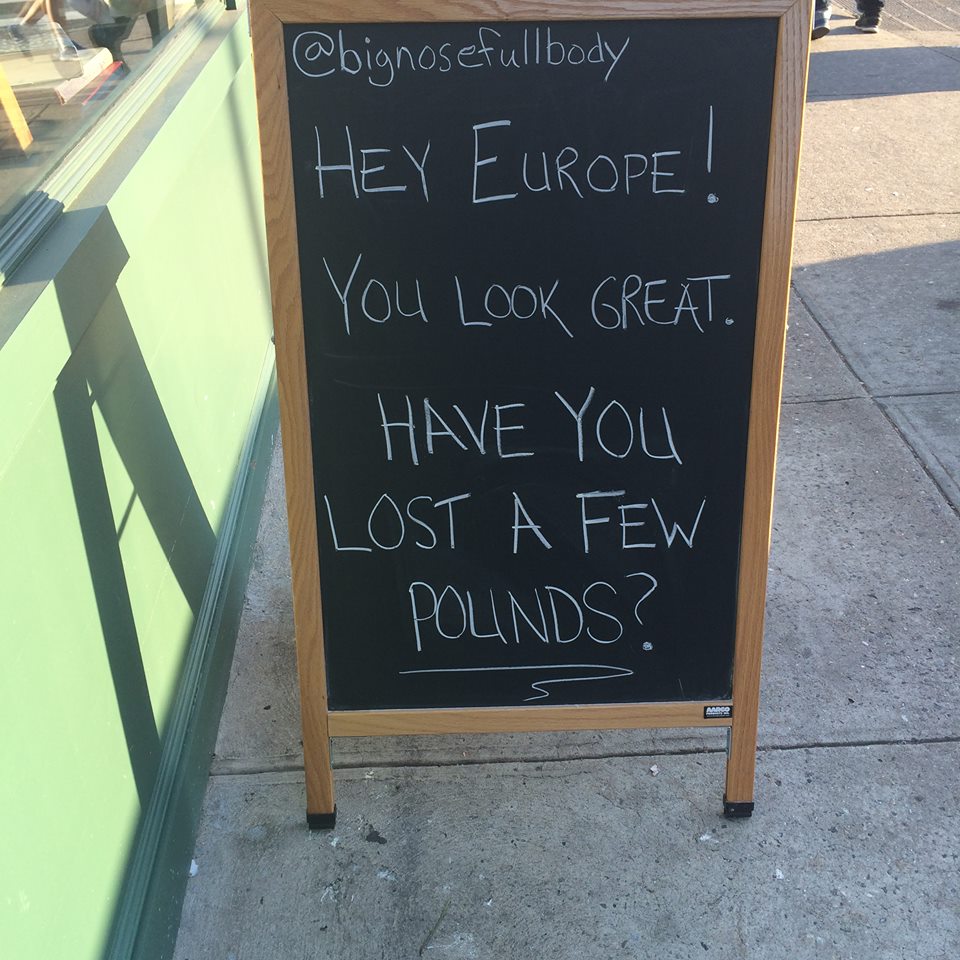 @bignosefullbody
HEY EUROPE!
YOU LOOK GREAT.
HAVE YOU
LOST A FEW
POUNDS?
AARCO